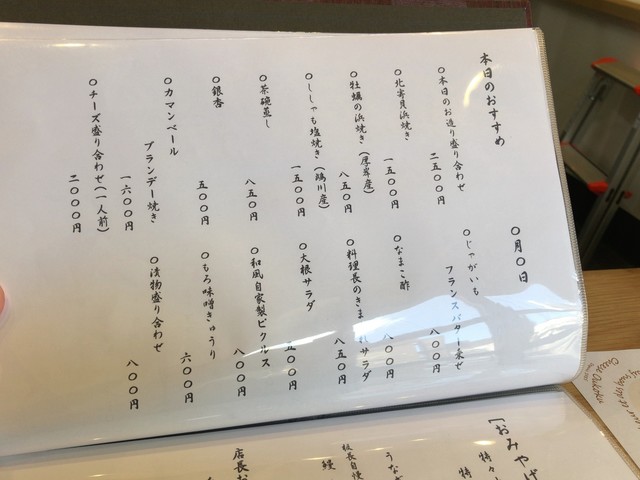 本日のおすすめ
○月○日
○本日のお造り盛り合わせ
二五〇〇円
○北寄貝浜焼き
一五〇〇円
○牡蠣の浜焼き(厚岸産)
八五〇円
○ししゃも塩焼き(鵡川産)
一五〇〇円
○茶碗蒸し
八五〇円
○銀杏
五〇〇円
○カマンベール
ブランデー焼き
一六〇〇円
○チーズ盛り合わせ(一人前)
二〇〇〇円
○じゃがいも
フランスバター乗せ
八〇〇円
○なまこ酢
八〇〇円
○料理長のきまぐれサラダ
八五〇円
○大根サラダ
五〇〇円
○和風自家製ピクルス
八〇〇円
○もろ味噌きゅうり
六〇〇円
○漬物盛り合わせ
八〇〇円
[おみやげ
特々
特
うな
板長自慢
鰻
店長お